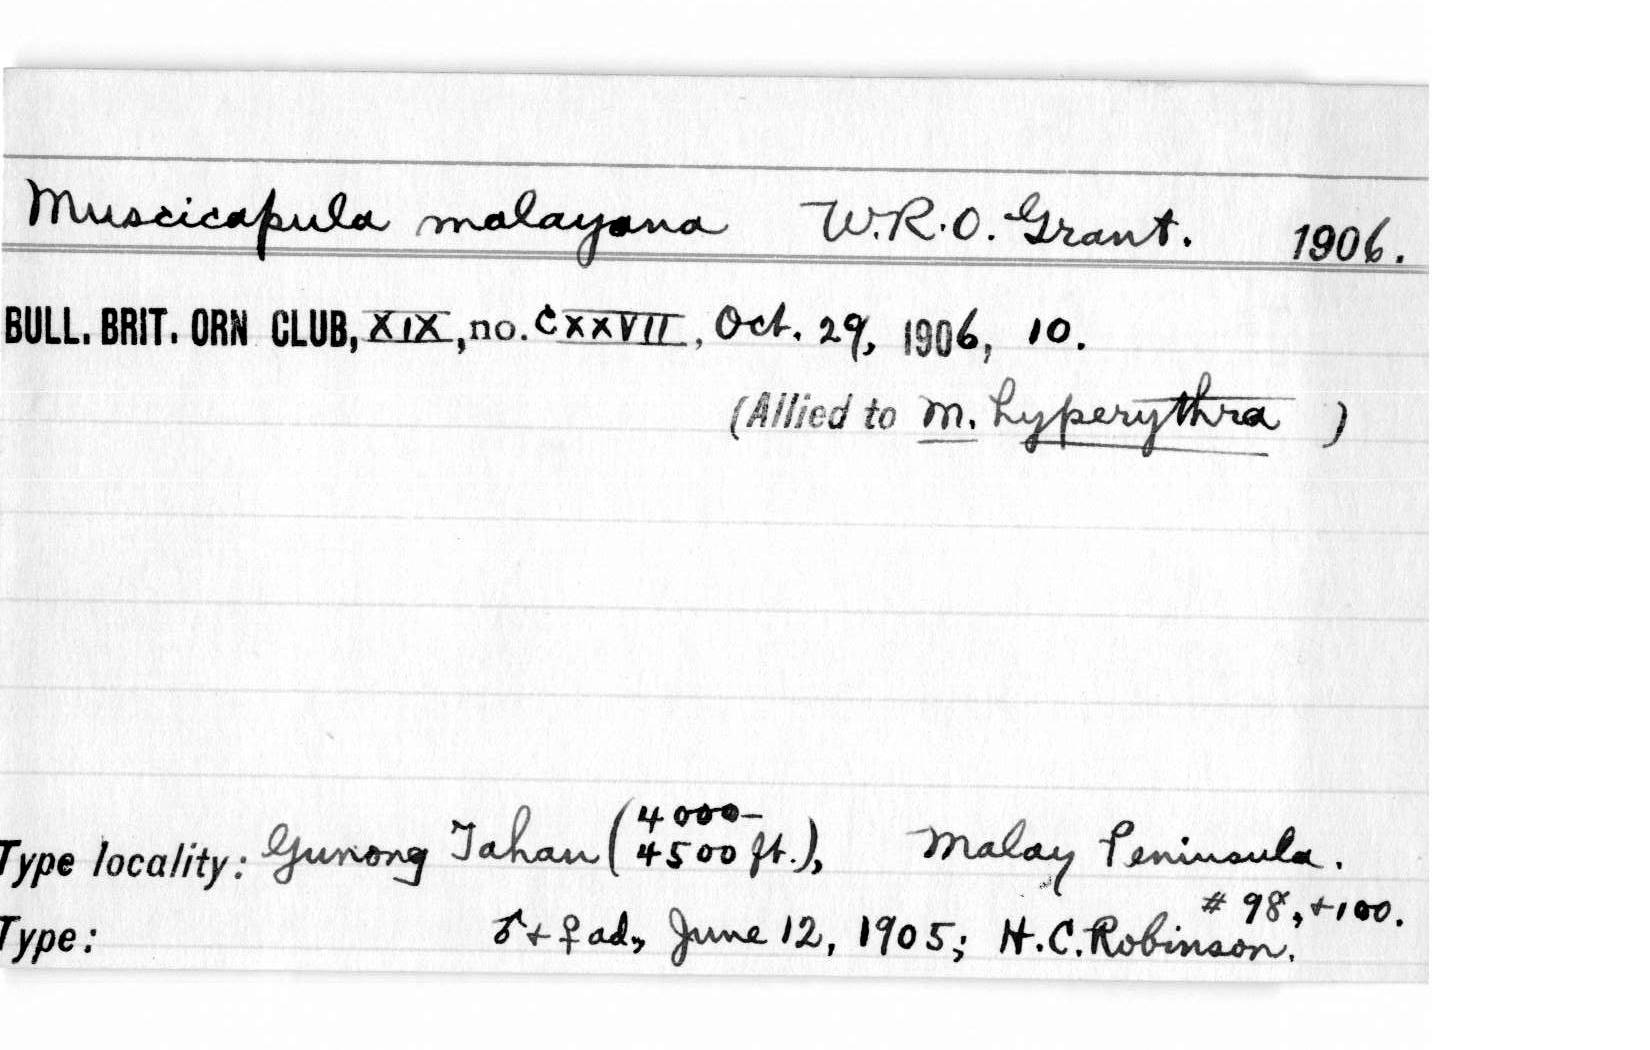 Muscicapula malayana W.R.O. Grant. 1906.
BULL. BRIT. ORN CLUB, XIX, no. CXXVII, Oct. 29, 1906, 10.
(Allied to M. hyperythra )
Type locality: Gunong Tahan (4000-4500 ft.), Malay Peninsula.
# 98, + 100.
Type: ♂ + ♀ ad., June 12, 1905; H.C. Robinson.